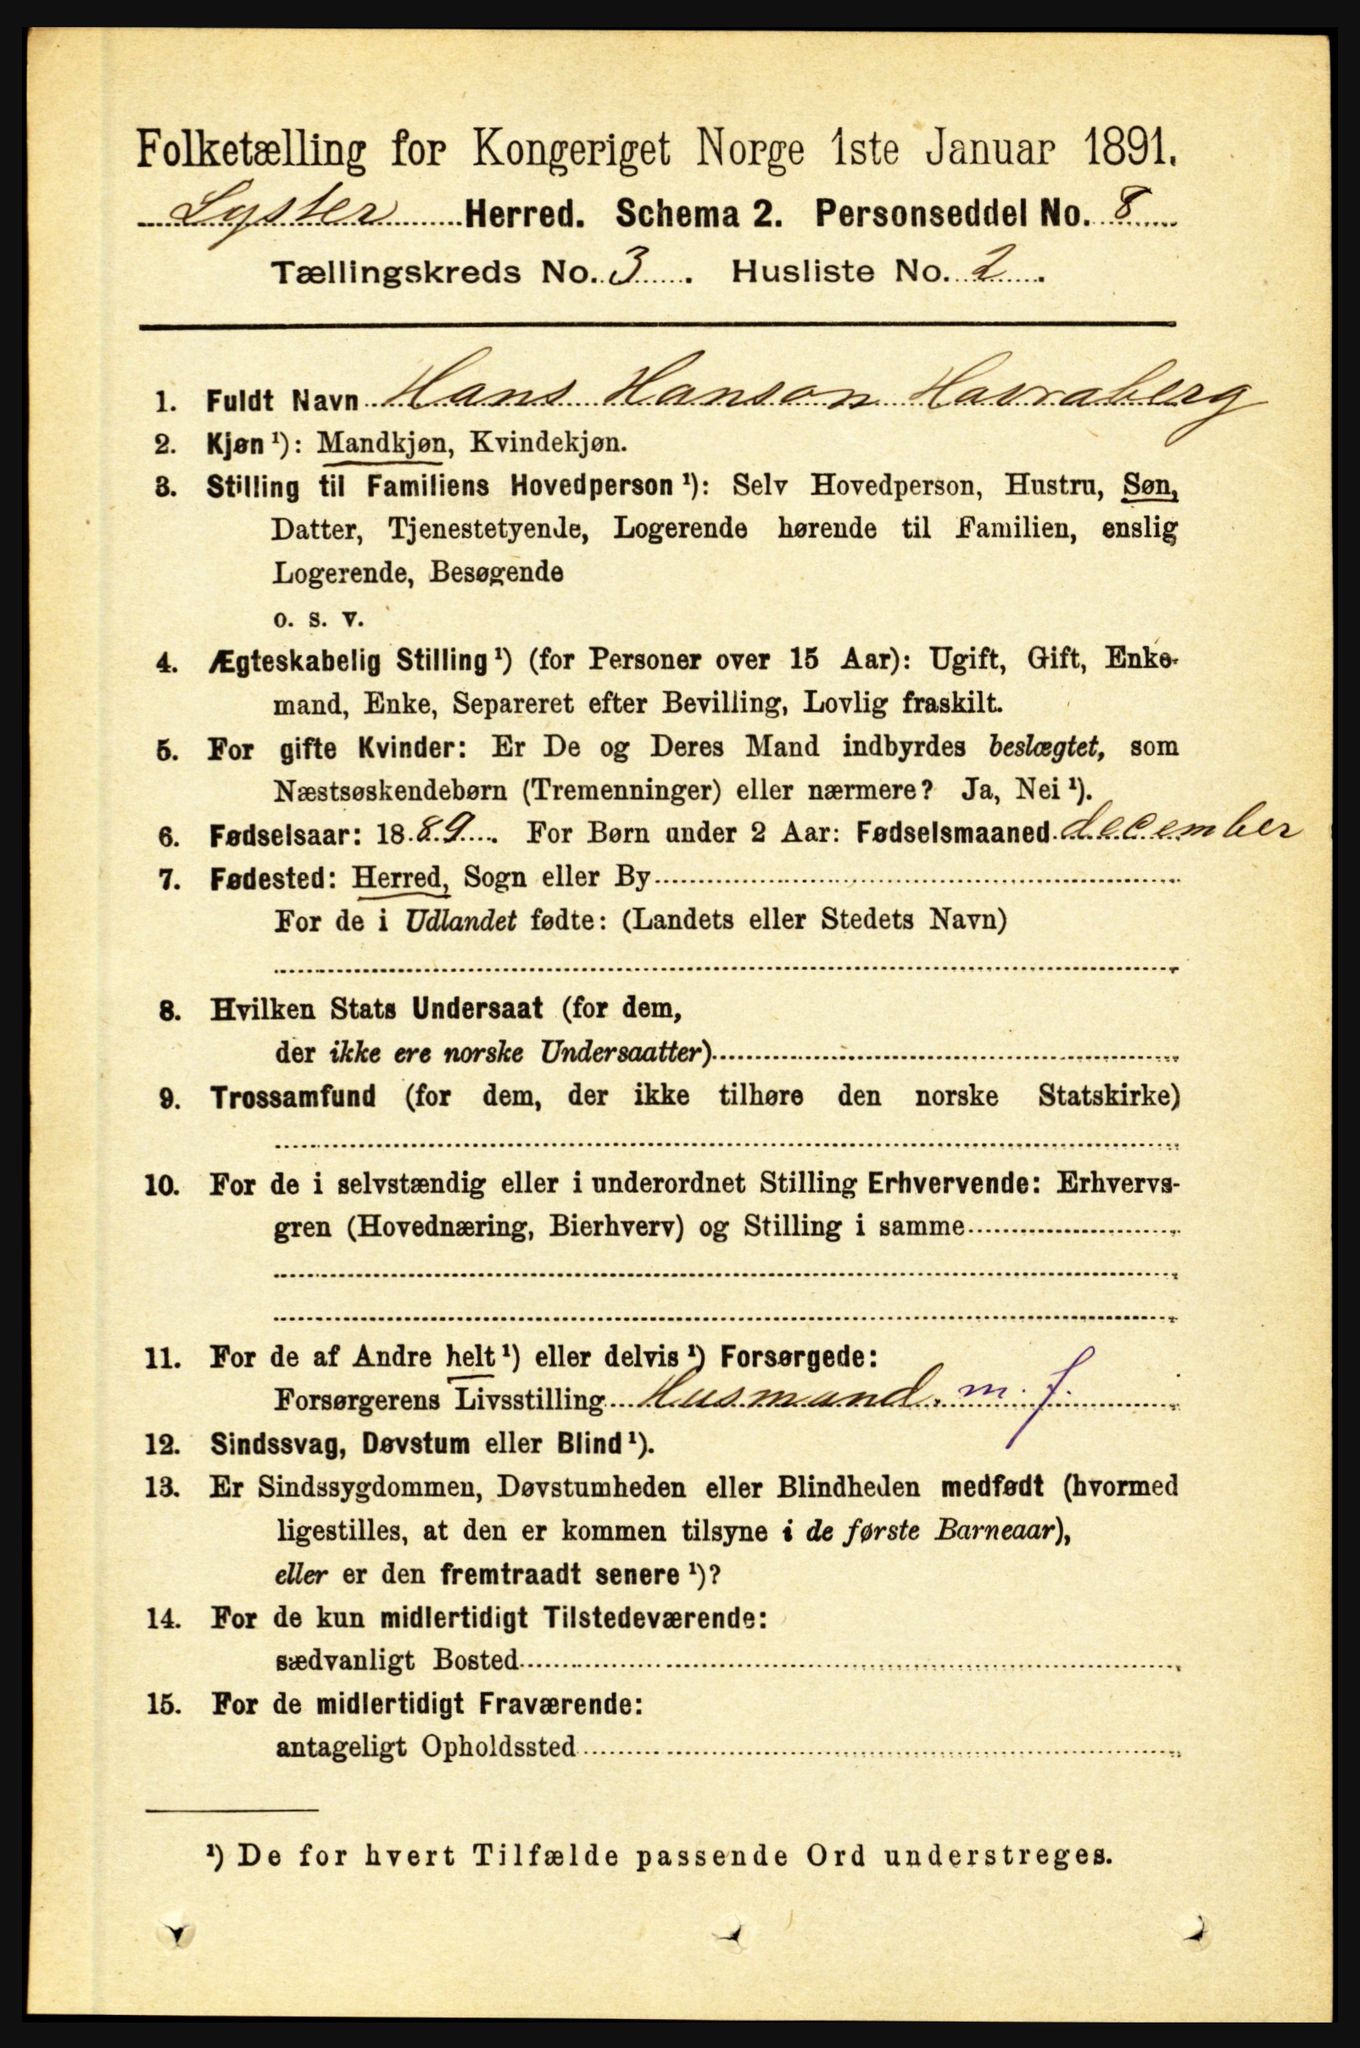 Folketælling for Kongeriget Norge 1ste Januar 1891.
Lyster Herred. Schema 2. Personseddel No. 8
Tællingskreds No. 3. Husliste No. 2.
1. Fuldt Navn Hans Hanson Havraberg
2. Kjøn¹): Mandkjøn, Kvindekjøn.
3. Stilling til Familiens Hovedperson¹): Selv Hovedperson, Hustru, Søn,
Datter, Tjenestetyende, Logerende hørende til Familien, enslig
Logerende, Besøgende
o. s. v.
4. Ægteskabelig Stilling¹) (for Personer over 15 Aar): Ugift, Gift, Enke-
mand, Enke, Separeret efter Bevilling, Lovlig fraskilt.
5. For gifte Kvinder: Er De og Deres Mand indbyrdes beslægtet, som
Næstsøskendebørn (Tremenninger) eller nærmere? Ja, Nei¹).
6. Fødselsaar: 1889. For Børn under 2 Aar: Fødselsmaaned december
7. Fødested: Herred, Sogn eller By
For de i Udlandet fødte: (Landets eller Stedets Navn)
8. Hvilken Stats Undersaat (for dem,
der ikke ere norske Undersaatter)
9. Trossamfund (for dem, der ikke tilhøre den norske Statskirke)
10. For de i selvstændig eller i underordnet Stilling Erhvervende: Erhvervs-
gren (Hovednæring, Bierhverv) og Stilling i samme
11. For de af Andre helt¹) eller delvis¹) Forsørgede:
Forsørgerens Livsstilling Husmand. m. f.
12. Sindssvag, Døvstum eller Blind¹).
13. Er Sindssygdommen, Døvstumheden eller Blindheden medfødt (hvormed
ligestilles, at den er kommen tilsyne i de første Barneaar),
eller er den fremtraadt senere¹)?
14. For de kun midlertidigt Tilstedeværende:
sædvanligt Bosted
15. For de midlertidigt Fraværende:
antageligt Opholdssted
¹) De for hvert Tilfælde passende Ord understreges.